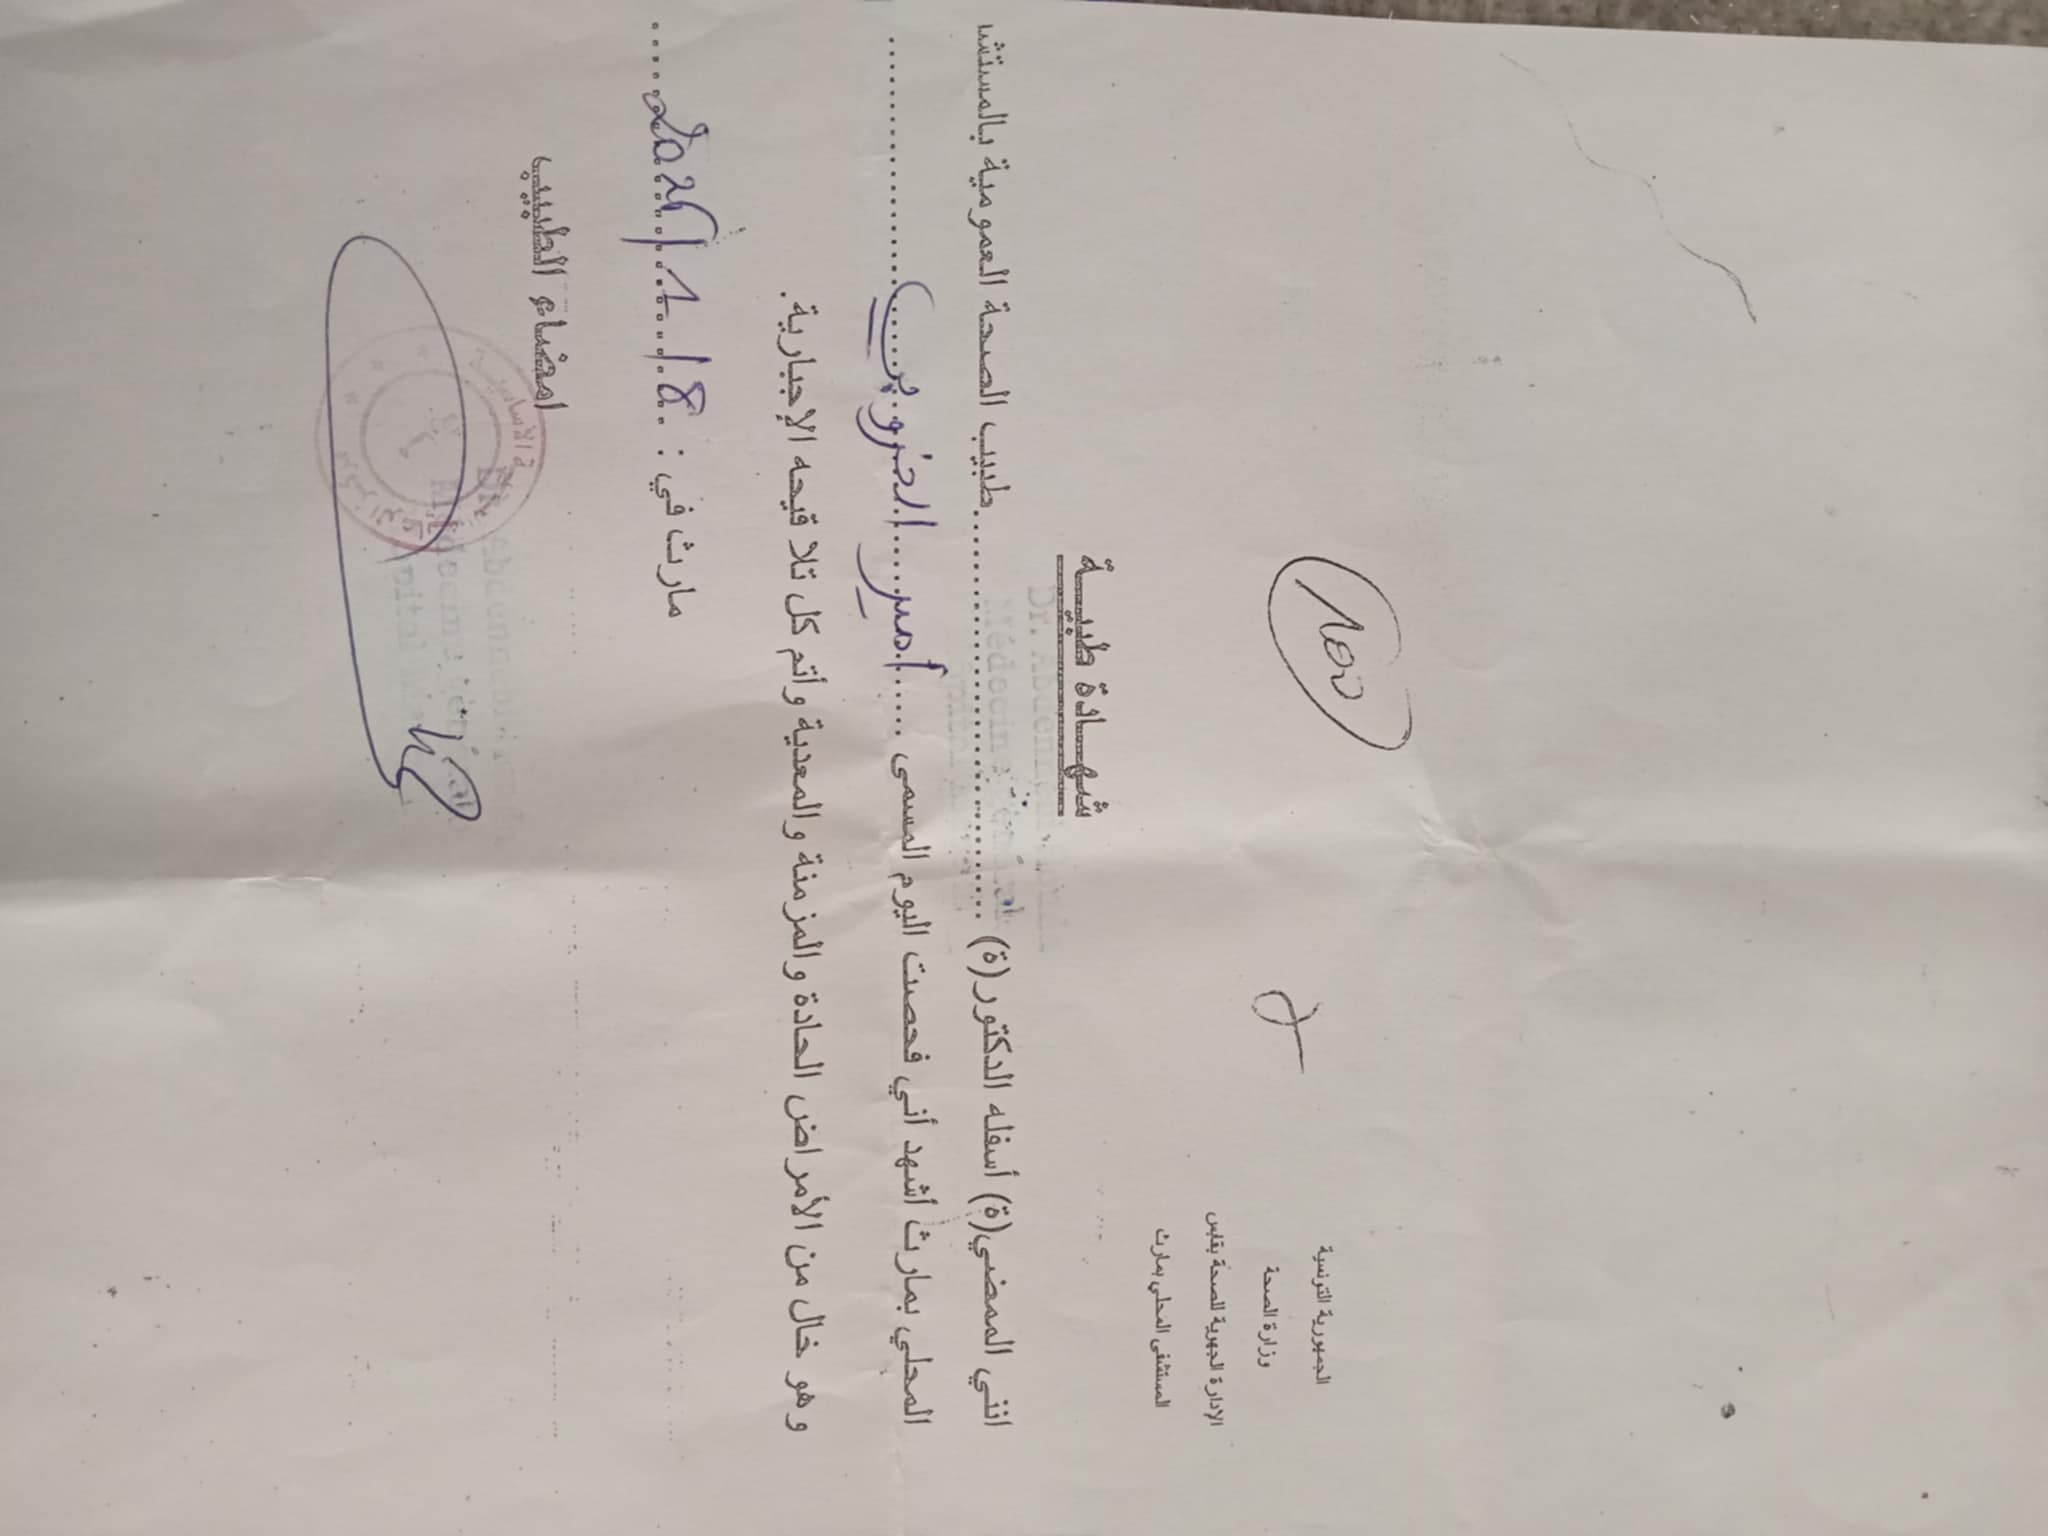 الجمهورية التونسية
وزارة الصحة
الإدارة الجهوية للصحة بقابس
المستشفى المحلي بمارث
100
شهـــادة طبيـــة
انني الممضي(ة) أسفله الدكتور(ة) .................................... طبيب الصحة العمومية بالمستشـ
المحلي بمارث أشهد أني فحصت اليوم المسمى ..... أمير
وهو خال من الأمراض الحادة والمزمنة والمعدية وأتم كل تلاقيحه الإجبارية.
مارث في :
امضاء الطبيب